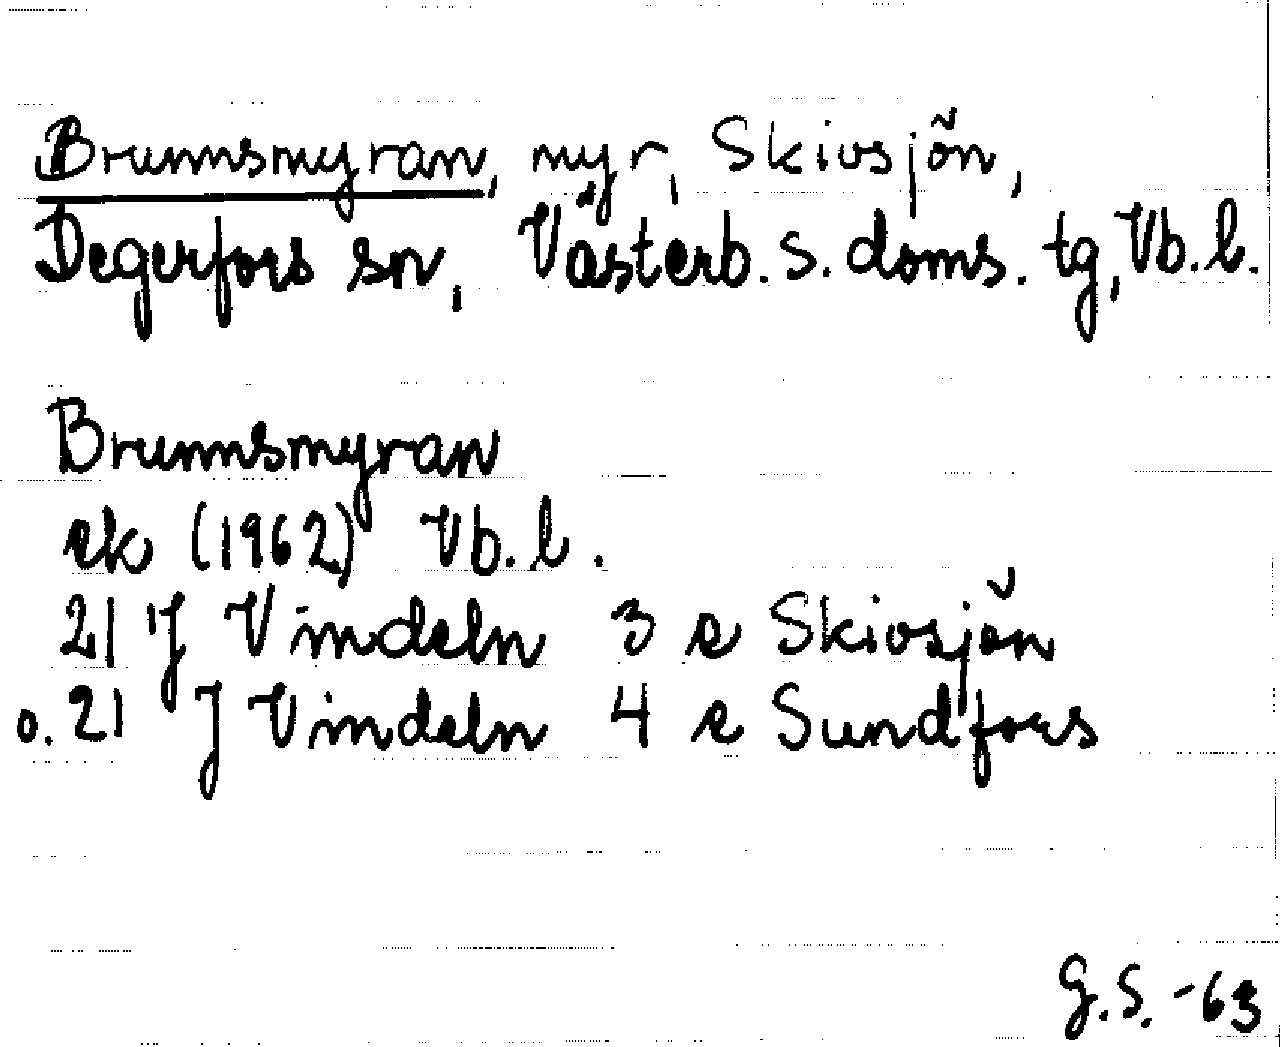 Brunnsmyran, myr, Skivsjön,
Degerfors sn, Västerb. s. doms. tg, Vb. l.
Brunnsmyran
ek (1962) Vb. l.
21 J Vindeln 3 e Skivsjön
o. 21 J Vindeln 4 e Sundfors
G.S. -63